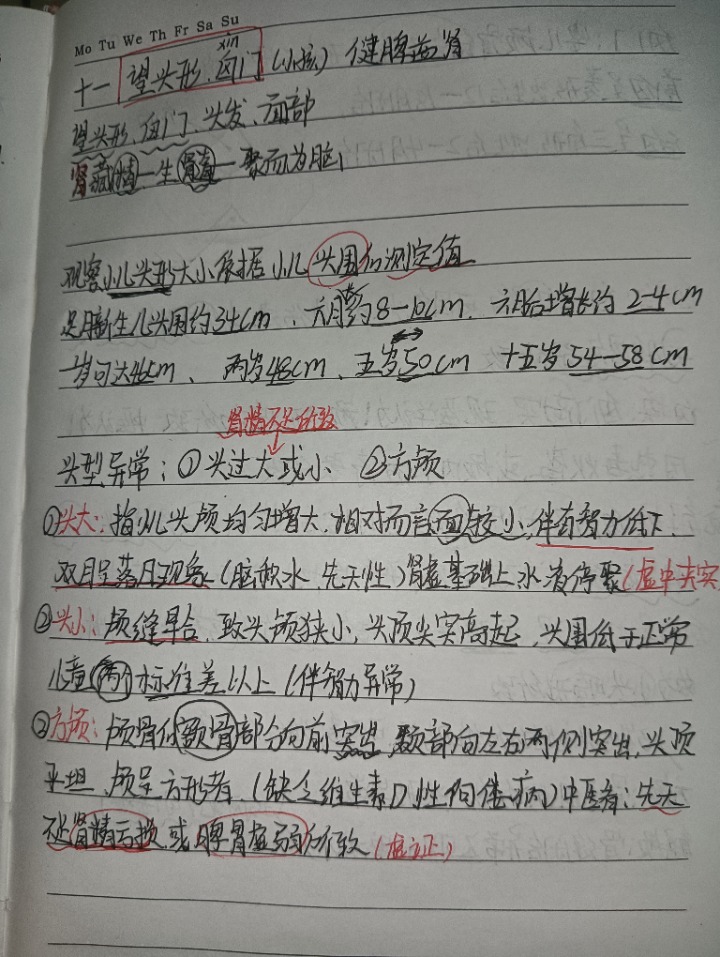 Mo Tu We Th Fr Sa Su
xin
十一 望头形、囟门（小孩） 健脾益肾
望头形、囟门、头发、面部
肾藏精—生骨髓—聚而为脑
观察小儿头形大小依据小儿头围的测定值
足月新生儿头围约34cm、六月约8-10cm、六月后增长约 2-4cm
一岁可达46cm、两岁48cm、五岁50cm 十五岁54-58cm
肾精不足所致
头型异常：①头过大或小 ②方颅
①头大：指小儿头颅均匀增大，相对而言面较小，伴有智力低下，
双目呈落日现象（脑积水，先天性）肾虚基础上水液停聚（虚中夹实
②头小：颅缝早合，致头颅狭小，头顶尖突高起，头围低于正常
儿童两个标准差以上（伴智力异常）
②方颅：颅骨 额骨部分向前突出，颞部向左右两侧突出，头顶
平坦，颅呈方形者，（缺乏维生素D性佝偻病）中医者：先天
不足肾精亏损，或脾胃虚弱所致（虚证）